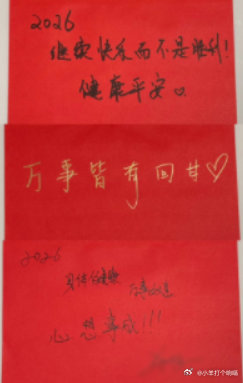 2026
继续快乐而不是胜利!
健康平安♡
万事皆有回甘♡
2026
身体健康 万事如意
心想事成!!!
@小羊打个哟嗬